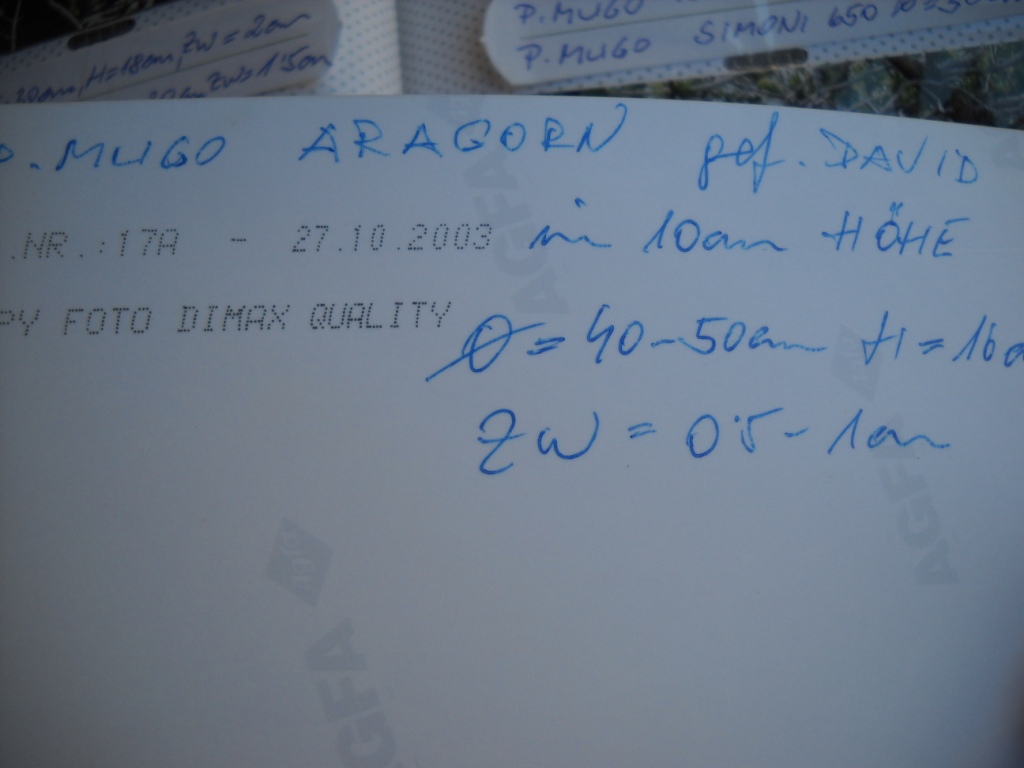 P. MUGO
P. MUGO SIMONI 650
20cm, H=18cm, ZW=2cm
ZW=1'5cm
P. MUGO ARAGORN gef. DAVID
.NR.:17A - 27.10.2003 in 10cm HÖHE
PY FOTO DIMAX QUALITY
Ø = 40-50cm H = 16c
ZW = 0'5-1cm
AGFA
AGFA
AGFA
AGFA